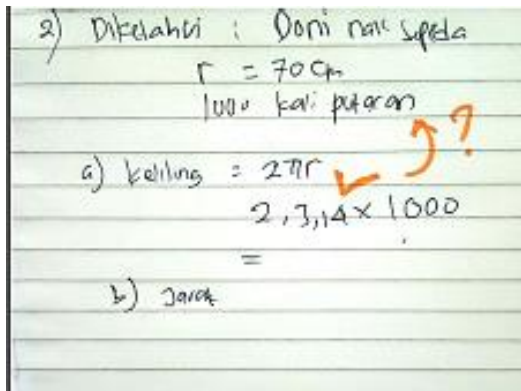 2) Diketahui : Doni naik sepeda
r = 70 cm
1000 kali putaran
?
a) keliling = 2πr
2,3,14 x 1000
=
b) Jarak